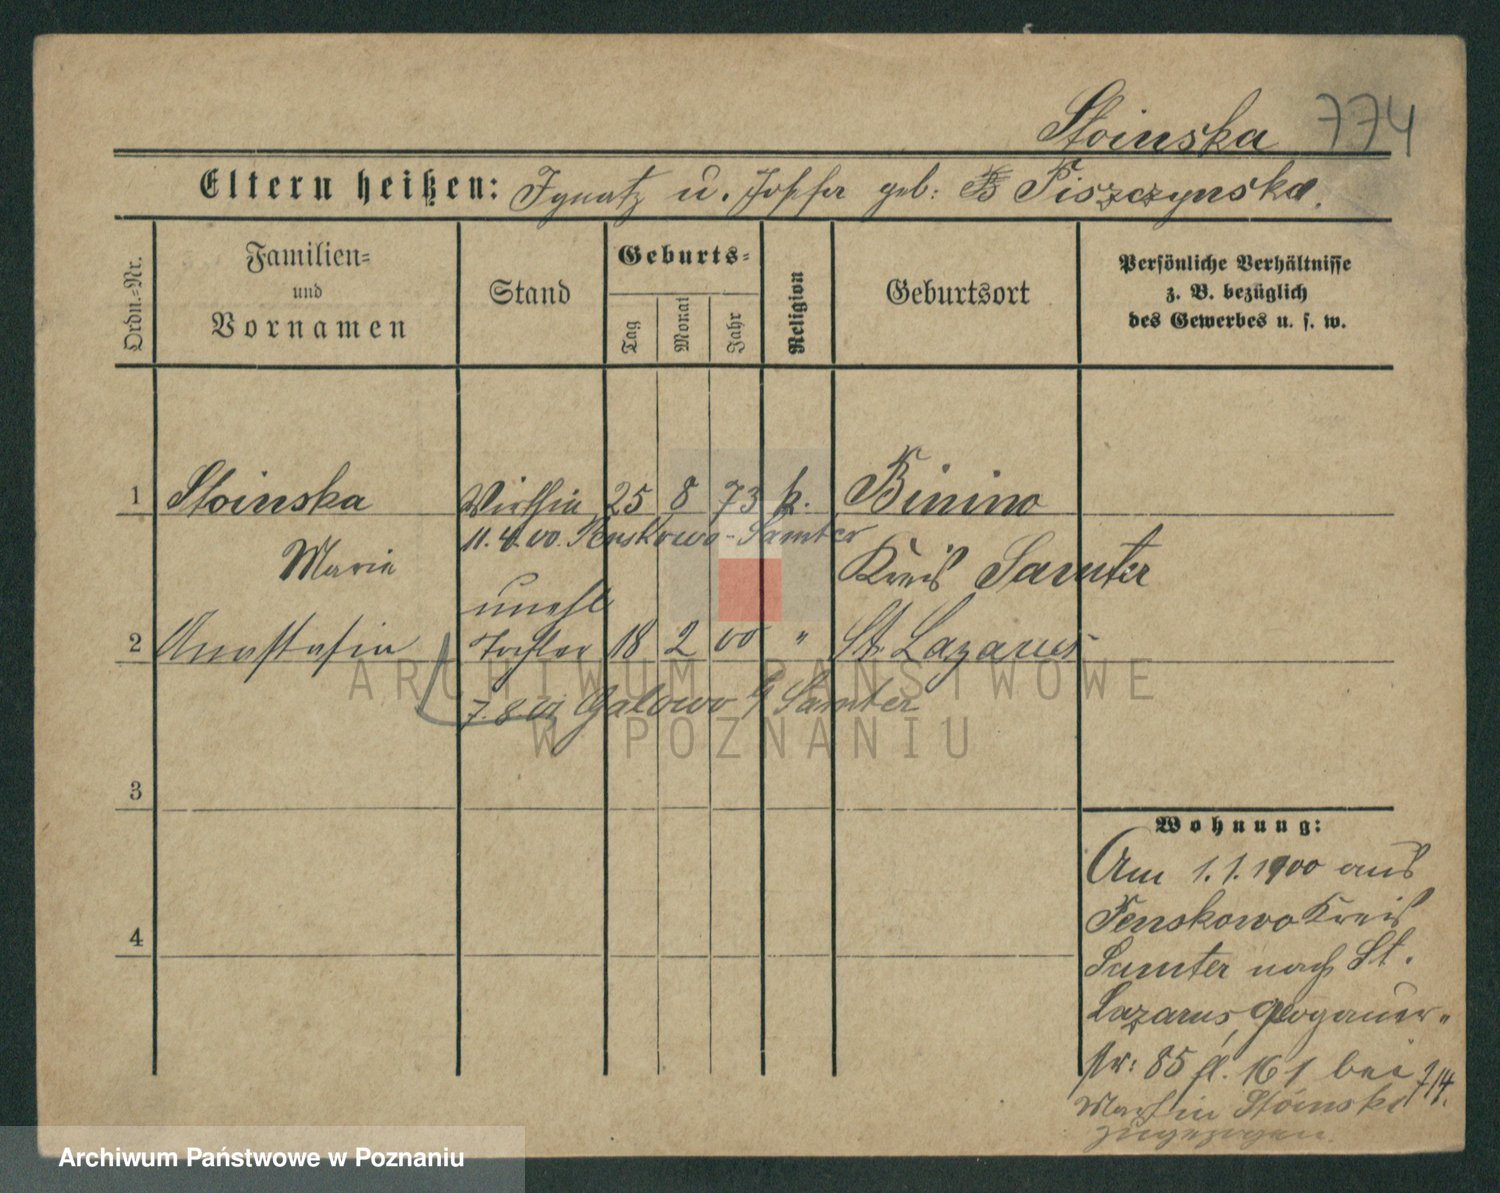 Stoinska 774
Eltern heißen: Ignatz u. Josefa geb: Piszczynska.
Ordn.-Nr.
Familien- und Vornamen
Stand
Geburts-
Tag
Monat
Jahr
Religion
Geburtsort
Persönliche Verhältnisse
z. B. bezüglich
des Gewerbes u. s. w.
1 Stoinska Wirthin 25 8 73 k. Binino
11. 4. 00. Penskowo - Samter
Maria Kreis Samter
unehl
2 Anastasia Tochter 18 2 00 " St. Lazarus
7. 8. 01 Galowo b/ Samter
3
4
Wohnung:
Am 1. 1. 1900 aus
Penskowo Kreis
Samter nach St.
Lazarus, Glogauer-
str: 85 fl. 161 bei 714.
Martin Stoinski
zugezogen
ARCHIWUM PAŃSTWOWE
W POZNANIU
Archiwum Państwowe w Poznaniu